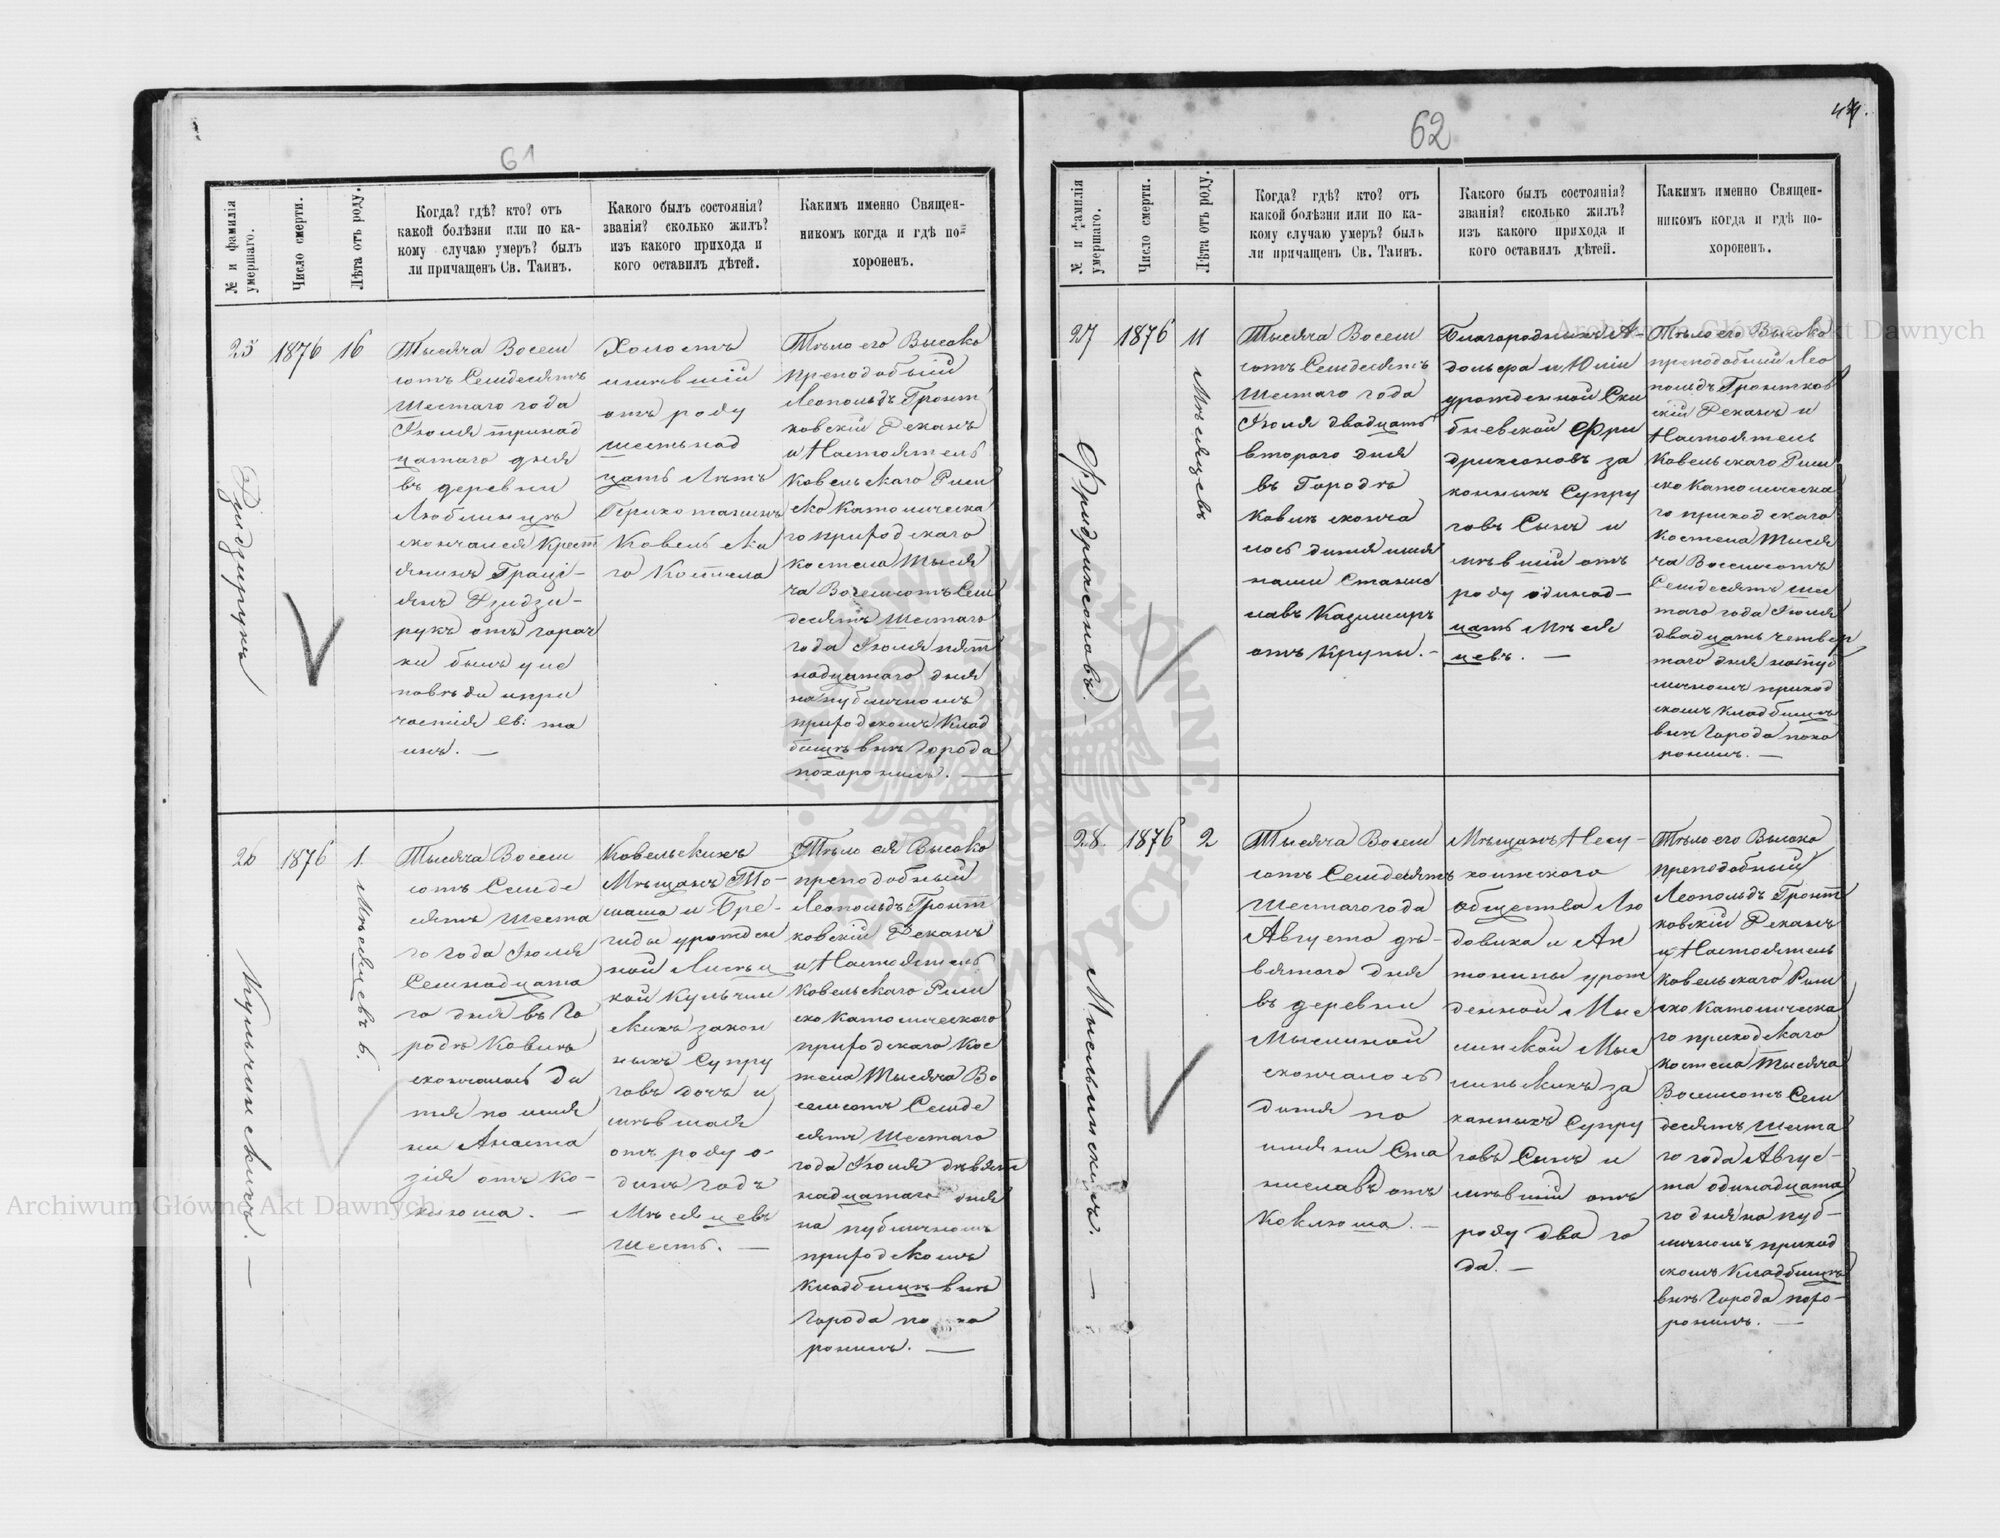 61
№ и фамилія умершаго.
Число смерти.
Лѣта отъ роду.
Когда? гдѣ? кто? отъ
какой болѣзни или по ка-
кому случаю умеръ? былъ
ли причащенъ Св. Таинъ.
Какого былъ состоянія?
званія? сколько жилъ?
изъ какого прихода и
кого оставилъ дѣтей.
Какимъ именно Священ-
никомъ когда и гдѣ по-
хороненъ.
25
Дзидзирукъ
1876
16
Тысяча Восем
сотъ Семдесятъ
Шестаго года
Іюля тринад
цатаго дня
въ деревни
Люблинцъ
скончался Крест
янинъ Граці-
янъ Дзидзи-
рукъ отъ горяч
ки былъ у ис
повѣди и при
частія Св: та
инъ. —
Холостъ
имѣвшій
отъ роду
шестьнад
цать лѣтъ
Прихожанинъ
Ковельска
го Костела
Тѣло его Высоко
преподобный
Леопольдъ Гронт
ковскій Деканъ
и Настоятель
Ковельскаго Рим
ско Католическа
го приходскаго
костела Тыся
ча Восемсотъ Сем
десятъ Шестаго
года Іюля пят
надцатаго дня
на публичномъ
приходскомъ клад
бищѣ внѣ Города
похоронилъ. —
26
Кульчинскихъ. —
1876
1.
Мѣсяцевъ 6.
Тысяча Восем
сотъ Семде
сятъ Шеста
го года Іюля
Семнадцата
го дня въ Го
родѣ Ковлѣ
скончалось ди
тя по имя
ни Анаста
зія отъ Ко-
клюша. —
Ковельскихъ
Мѣщанъ То-
маша и Бри-
гиды урожден
ной
кой Кульчин
скихъ закон
ныхъ Супру
говъ дочь и
мѣвшая
отъ роду о-
динъ годъ
Мѣсяцевъ
Шесть. —
Тѣло ея Высоко
преподобный
Леопольдъ Гронт
ковскій Деканъ
и Настоятель
Ковельскаго Рим
ско Католическаго
приходскаго Кос
тела Тысяча Во
семсотъ Семде
сятъ Шестаго
года Іюля девят
надцатаго дня
на публичномъ
приходскомъ
кладбищѣ внѣ
Города похо
ронилъ. —
62
44.
№ и фамилія умершаго.
Число смерти.
Лѣта отъ роду.
Когда? гдѣ? кто? отъ
какой болѣзни или по ка-
кому случаю умеръ? былъ
ли причащенъ Св. Таинъ.
Какого былъ состоянія?
званія? сколько жилъ?
изъ какого прихода и
кого оставилъ дѣтей.
Какимъ именно Священ-
никомъ когда и гдѣ по-
хороненъ.
27
Фридриксоновъ. —
1876
11
Мѣсяцевъ
Тысяча Восем
сотъ Семдесятъ
Шестаго года
Іюля двадцать
втораго дня
въ Городѣ
Ковлѣ сконча
лось дитя имя
нами Станис
лавъ Казимиръ
отъ крупы. —
Благородныхъ А-
дольфа и Юліи
урожденной Ски
бневской Фри
дриксоновъ за
конныхъ Супру
говъ Сынъ и
мѣвшій отъ
роду одинад-
цать Мѣся
цевъ. —
Тѣло его Высоко
преподобный Лео
польдъ Гронтков
скій Деканъ и
Настоятель
Ковельскаго Рим
ско Католическа
го приходскаго
Костела Тыся
ча Восемсотъ
Семдесятъ Шес
таго года Іюля
двадцать четвер
таго дня на пуб
личномъ приход
скомъ кладбищѣ
внѣ Города похо
ронилъ. —
28.
Мыслинскихъ. —
1876
2
Тысяча Восем
сотъ Семдесятъ
Шестаго года
Августа дѣ-
вятаго дня
въ деревни
Мыслиной
скончалось
дитя по
имяни Ста
ниславъ отъ
Коклюша. —
Мѣщанъ Несу-
хоижского
общества Лю
довика и Ан
тонины урож
денной Мыс
линской Мыс
линьскихъ за
конныхъ Супру
говъ Сынъ и
мѣвшій отъ
роду два го
да. —
Тѣло его Высоко
преподобный
Леопольдъ Гронт
ковскій Деканъ
и Настоятель
Ковельскаго Рим
ско Католическа
го приходскаго
костела Тысяча
Восемсотъ Сем
десятъ Шеста
го года Авгус-
та одинадцата
го дня на пуб-
личномъ приход
скомъ Кладбищѣ
внѣ Города похо-
ронилъ. —
Archiwum Główne Akt Dawnych
Archiwum Główne Akt Dawnych